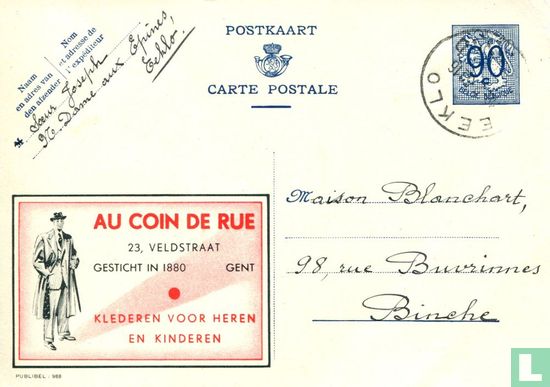 POSTKAART
CARTE POSTALE
Nom
et adresse de
l'expéditeur
Naam
en adres van
den afzender
Sœur Joseph
N.D. Dame aux Epines,
Eeklo.
90
BELGIE-BELGIQUE
EEKLO
AU COIN DE RUE
23, VELDSTRAAT
GESTICHT IN 1880 GENT
KLEDEREN VOOR HEREN
EN KINDEREN
PUBLIBEL - 968
Maison Blanchart,
98, rue Buvrinnes
Binche
catawiki